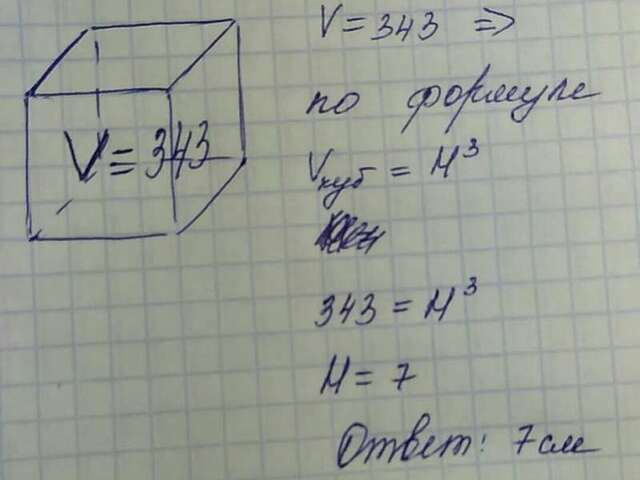 V = 343
V = 343 ⇒
по формуле
Vкуб = H³
343 = H³
H = 7
Ответ: 7см